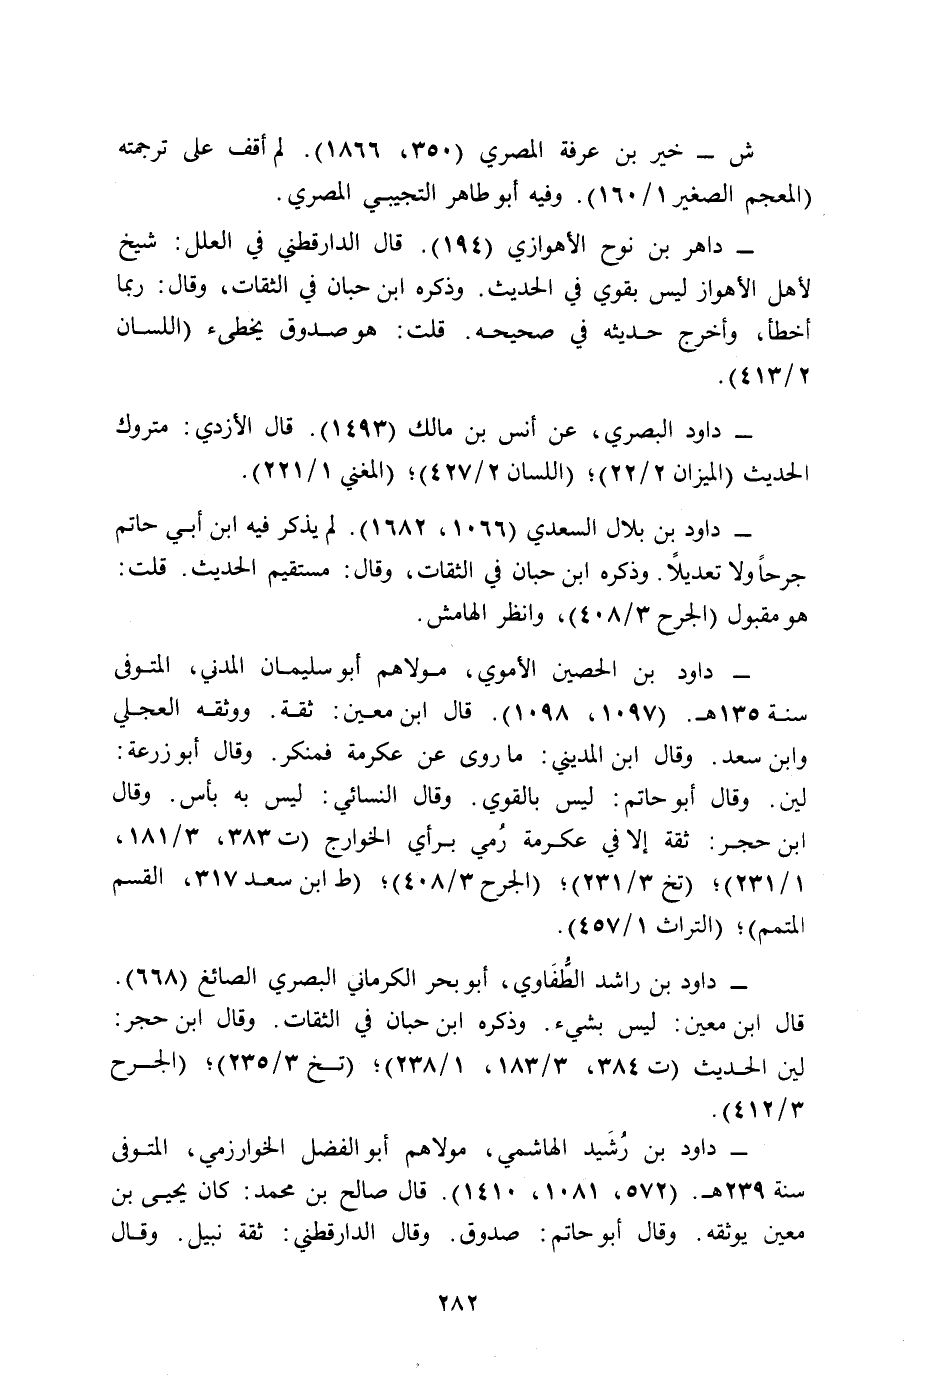 ش ــ خير بن عرفة المصري (٣٥٠، ١٨٦٦). لم أقف على ترجمته
(المعجم الصغير ١/١٦٠). وفيه أبو طاهر التجيبي المصري.
ــ داهر بن نوح الأهوازي (١٩٤). قال الدارقطني في العلل: شيخ
لأهل الأهواز ليس بقوي في الحديث. وذكره ابن حبان في الثقات، وقال: ربما
أخطأ، وأخرج حديثه في صحيحه. قلت: هو صدوق يخطىء (اللسان
٤١٣/٢).
ــ داود البصري، عن أنس بن مالك (١٤٩٣). قال الأزدي: متروك
الحديث (الميزان ٢٢/٢)؛ (اللسان ٤٢٧/٢)؛ (المغني ٢٢١/١).
ــ داود بن بلال السعدي (١٠٦٦، ١٦٨٢). لم يذكر فيه ابن أبي حاتم
جرحاً ولا تعديلًا. وذكره ابن حبان في الثقات، وقال: مستقيم الحديث. قلت:
هو مقبول (الجرح ٤٠٨/٣)، وانظر الهامش.
ــ داود بن الحصين الأموي، مولاهم أبو سليمان المدني، المتوفى
سنة ١٣٥هـ. (١٠٩٧، ١٠٩٨). قال ابن معين: ثقة. ووثقه العجلي
وابن سعد. وقال ابن المديني: ما روى عن عكرمة فمنكر. وقال أبو زرعة:
لين. وقال أبو حاتم: ليس بالقوي. وقال النسائي: ليس به بأس. وقال
ابن حجر: ثقة إلا في عكرمة رُمي برأي الخوارج (ت ٣٨٣، ١٨١/٣،
٢٣١/١)؛ (تخ ٢٣١/٣)؛ (الجرح ٤٠٨/٣)؛ (ط ابن سعد ٣١٧، القسم
المتمم)؛ (التراث ٤٥٧/١).
ــ داود بن راشد الطُّفَاوي، أبو بحر الكرماني البصري الصائغ (٦٦٨).
قال ابن معين: ليس بشيء. وذكره ابن حبان في الثقات. وقال ابن حجر:
لين الحديث (ت ٣٨٤، ١٨٣/٣، ٢٣٨/١)؛ (تخ ٢٣٥/٣)؛ (الجرح
٤١٢/٣).
ــ داود بن رُشَيد الهاشمي، مولاهم أبو الفضل الخوارزمي، المتوفى
سنة ٢٣٩هـ. (٥٧٢، ١٠٨١، ١٤١٠). قال صالح بن محمد: كان يحيى بن
معين يوثقه. وقال أبو حاتم: صدوق. وقال الدارقطني: ثقة نبيل. وقال
٢٨٢